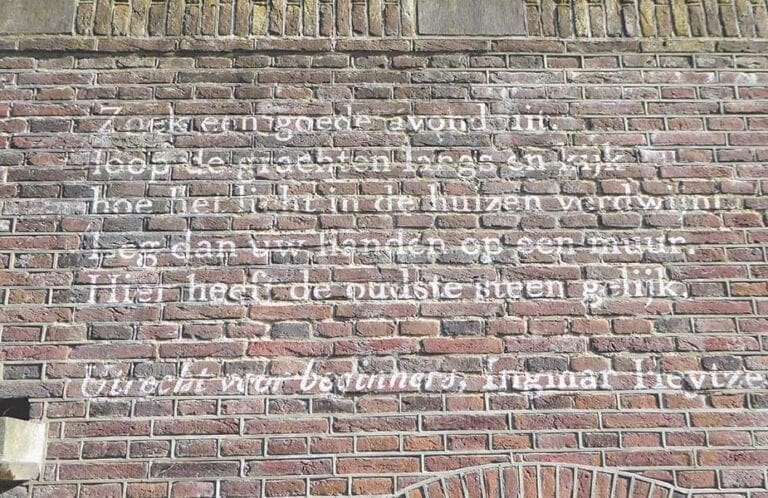 Zoek een goede avond uit,
loop de grachten langs en kijk
hoe het licht in de huizen verdwijnt
Leg dan uw handen op een muur.
Hier heeft de oudste steen gelijk.
Utrecht voor beginners, Ingmar Heytze